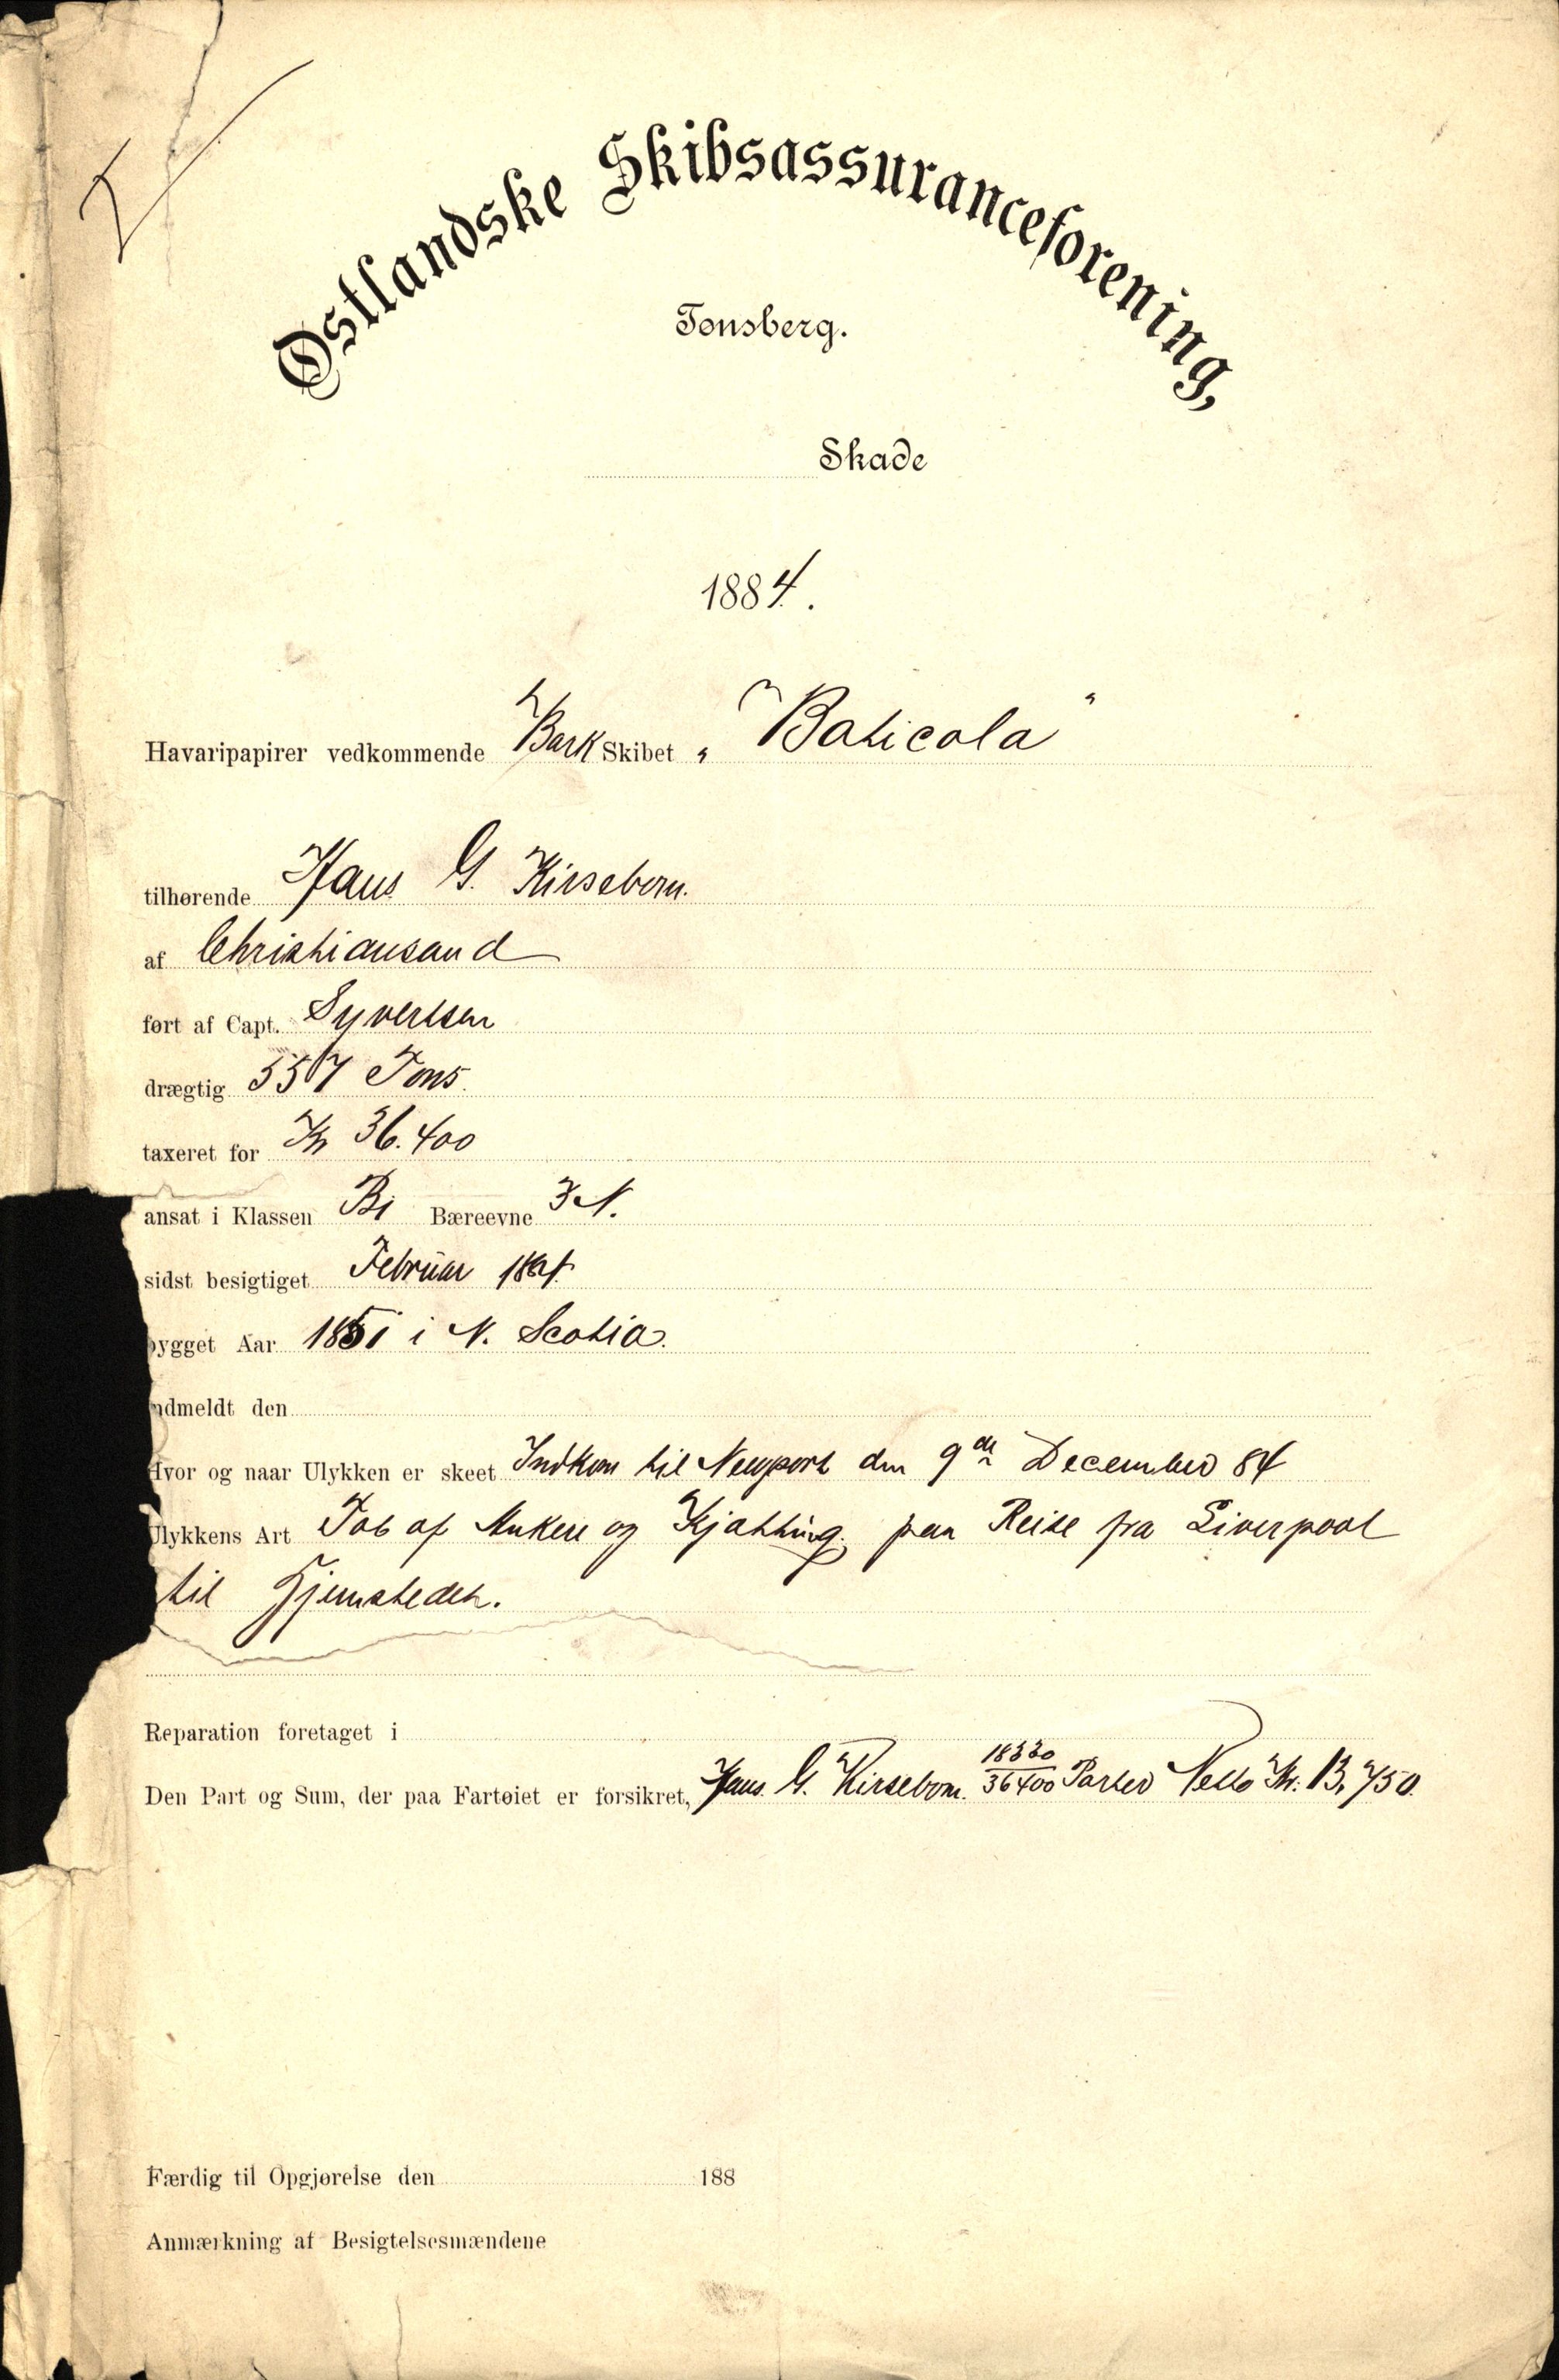 Østlandske Skibsassuranceforening,
Tønsberg.
Skade
1884.
Havaripapirer vedkommende Bark Skibet „ "Baticola"
tilhørende Hans G. Kirsebom.
af Christiansand
ført af Capt. Syvertsen
drægtig 557 Tons.
taxeret for Kr 36.400
ansat i Klassen B1 Bæreevne 3 N.
sidst besigtiget Februar 1884
bygget Aar 1851 i N. Scotia.
ndmeldt den
Hvor og naar Ulykken er skeet Indkom til Newport den 9de December 84
Ulykkens Art Tab af Anker og Kjætting paa Reise fra Liverpool
til Hjemstedet.
Reparation foretaget i
Den Part og Sum, der paa Fartøiet er forsikret, Hans G. Kirsebom. 18330/36400 Parter Netto Kr: 13,750.
Færdig til Opgjørelse den 188
Anmærkning af Besigtelsesmændene